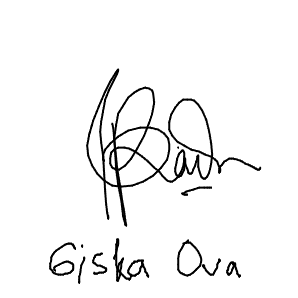 Giska Ova